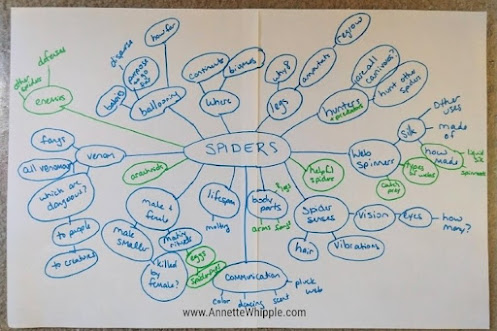 how far
disperse
defenses
other spiders
enemies
purpose
babies
ballooning
continents
biomes
where
why?
legs
amputate
regrow
are all
carnivores?
hunt other
spiders
hunters
SPIDERS
Web
spinners
Silk
other
uses
made of
how
made?
liquid
spinnerets
types of webs
catch prey
fangs
all venomous?
venom
which are
dangerous?
to people
to creatures
arachnids
male &
female
male
smaller
mating
rituals
killed
by
female?
eggs
spiderlings
lifespan
molting
body
parts
helpful
spiders
spider
senses
hair
vibrations
vision
eyes
how
many?
communication
color
dancing
scent
pluck
web
www.AnnetteWhipple.com